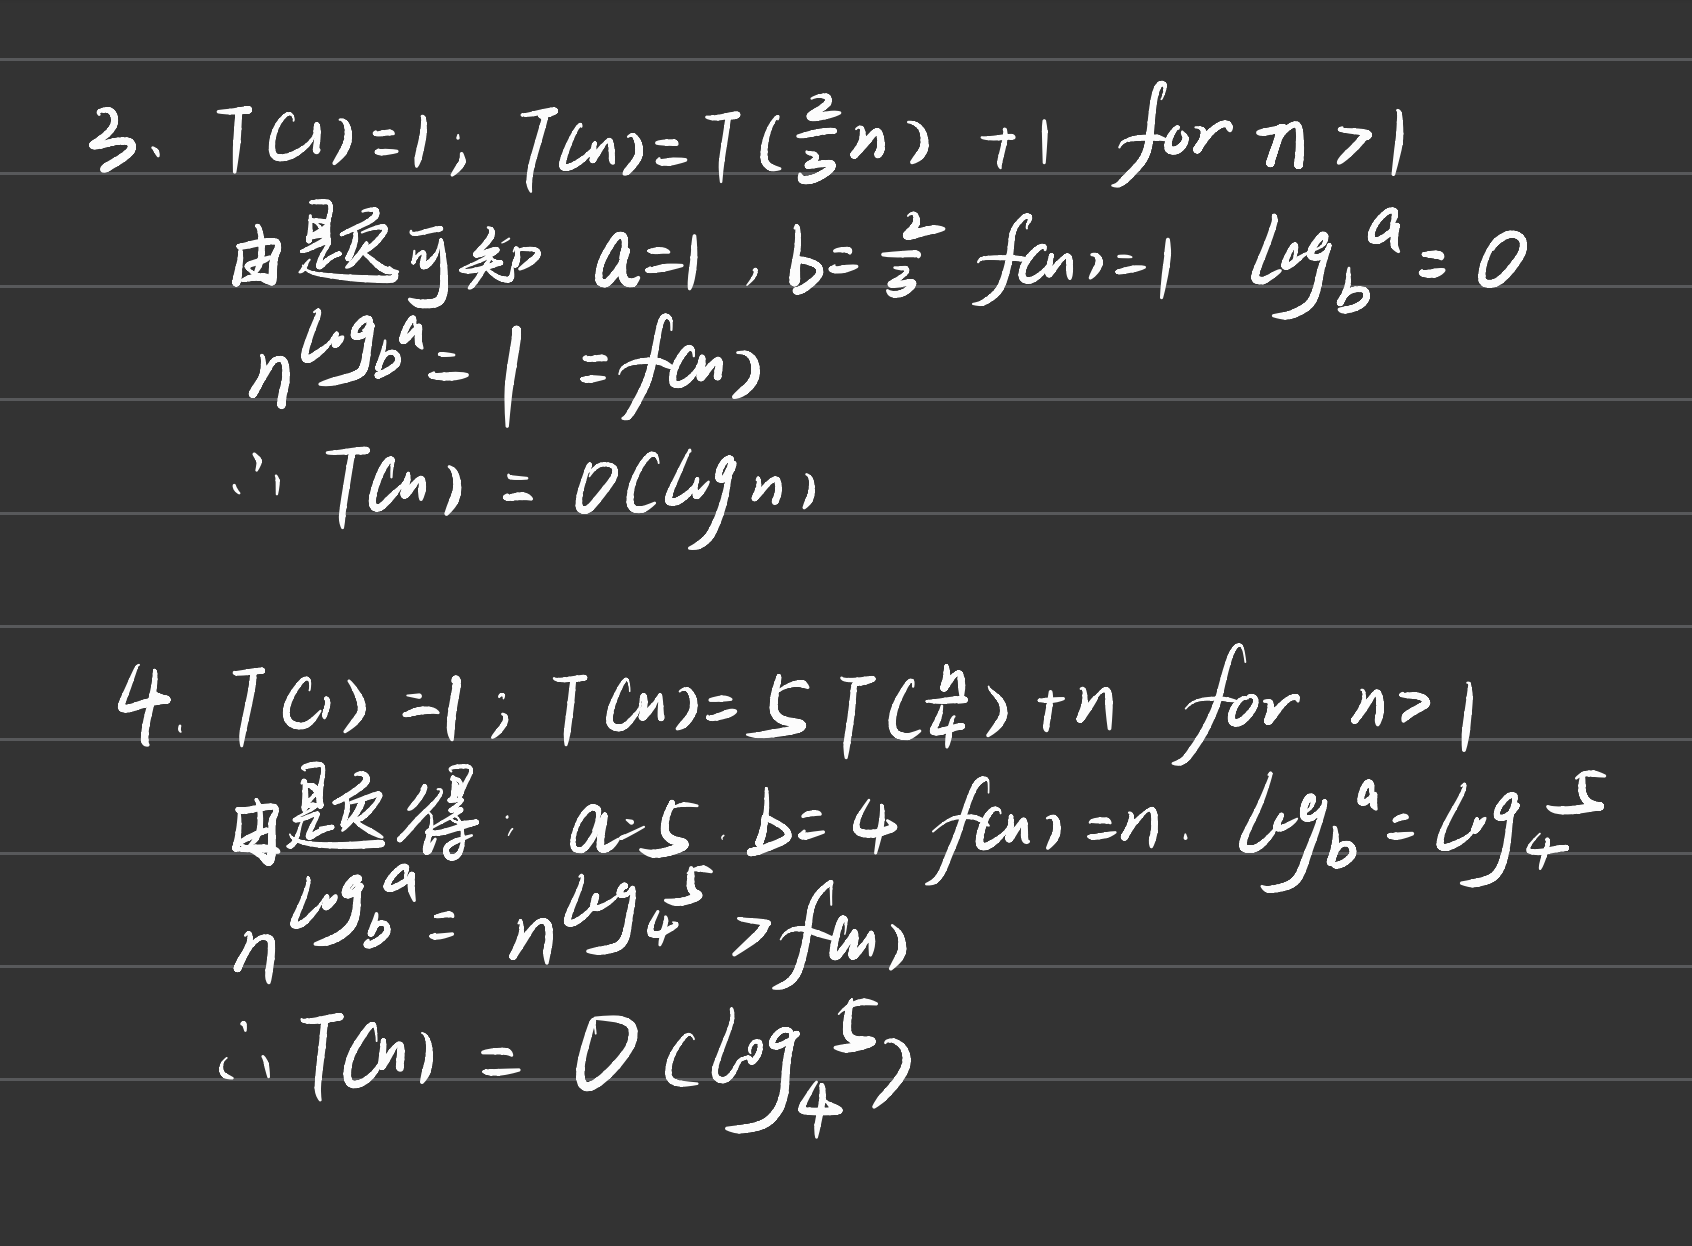 3、T(1)=1; T(n)=T(\frac{2}{3}n) +1 for n>1
由题可知 a=1, b=\frac{2}{3} f(n)=1 log_b^a=0
n^{log_b^a}=1 =f(n)
∴ T(n) = O(logn)
4. T(1)=1; T(n)=5T(\frac{n}{4})+n for n>1
由题得: a=5. b=4 f(n)=n. log_b^a=log_4^5
n^{log_b^a}= n^{log_4^5} >f(n)
∴ T(n) = O(log_4^5)